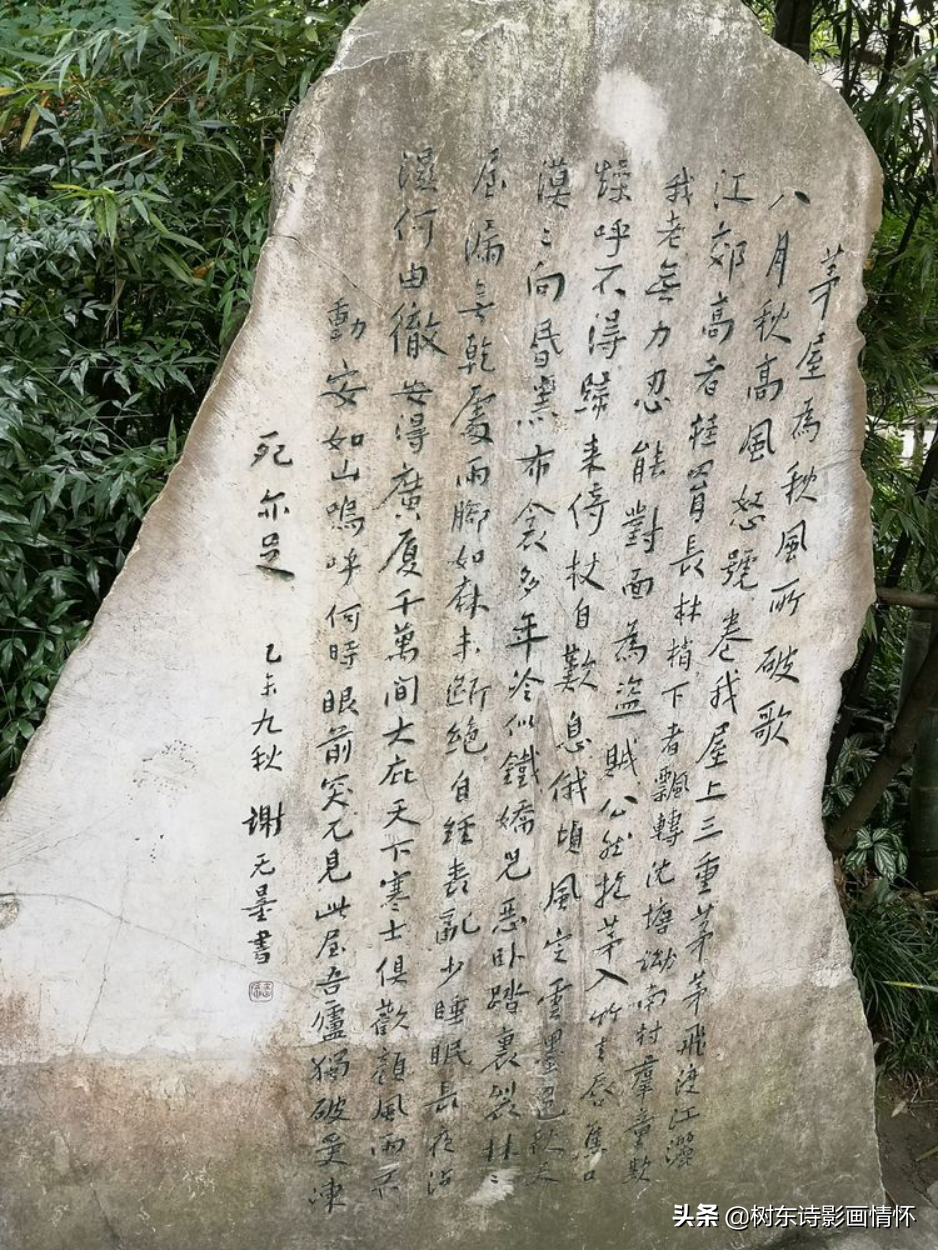 茅屋為秋風所破歌
八月秋高風怒號卷我屋上三重茅茅飛渡江灑
江郊高者挂罥長林梢下者飄轉沈塘坳南村羣童欺
我老無力忍能對面為盜賊公然抱茅入竹去唇焦口
燥呼不得歸來倚杖自歎息俄頃風定雲墨色秋天
漠〻向昏黑布衾多年冷似鐵嬌兒惡卧踏裏裂牀〻
屋漏無乾處雨腳如麻未斷絕自經喪亂少睡眠長夜沾
濕何由徹安得廣厦千萬間大庇天下寒士俱歡顏風雨不
動安如山嗚呼何時眼前突兀見此屋吾廬獨破受凍
死亦足 乙未九秋 謝无量書
头条 @树东诗影画情怀